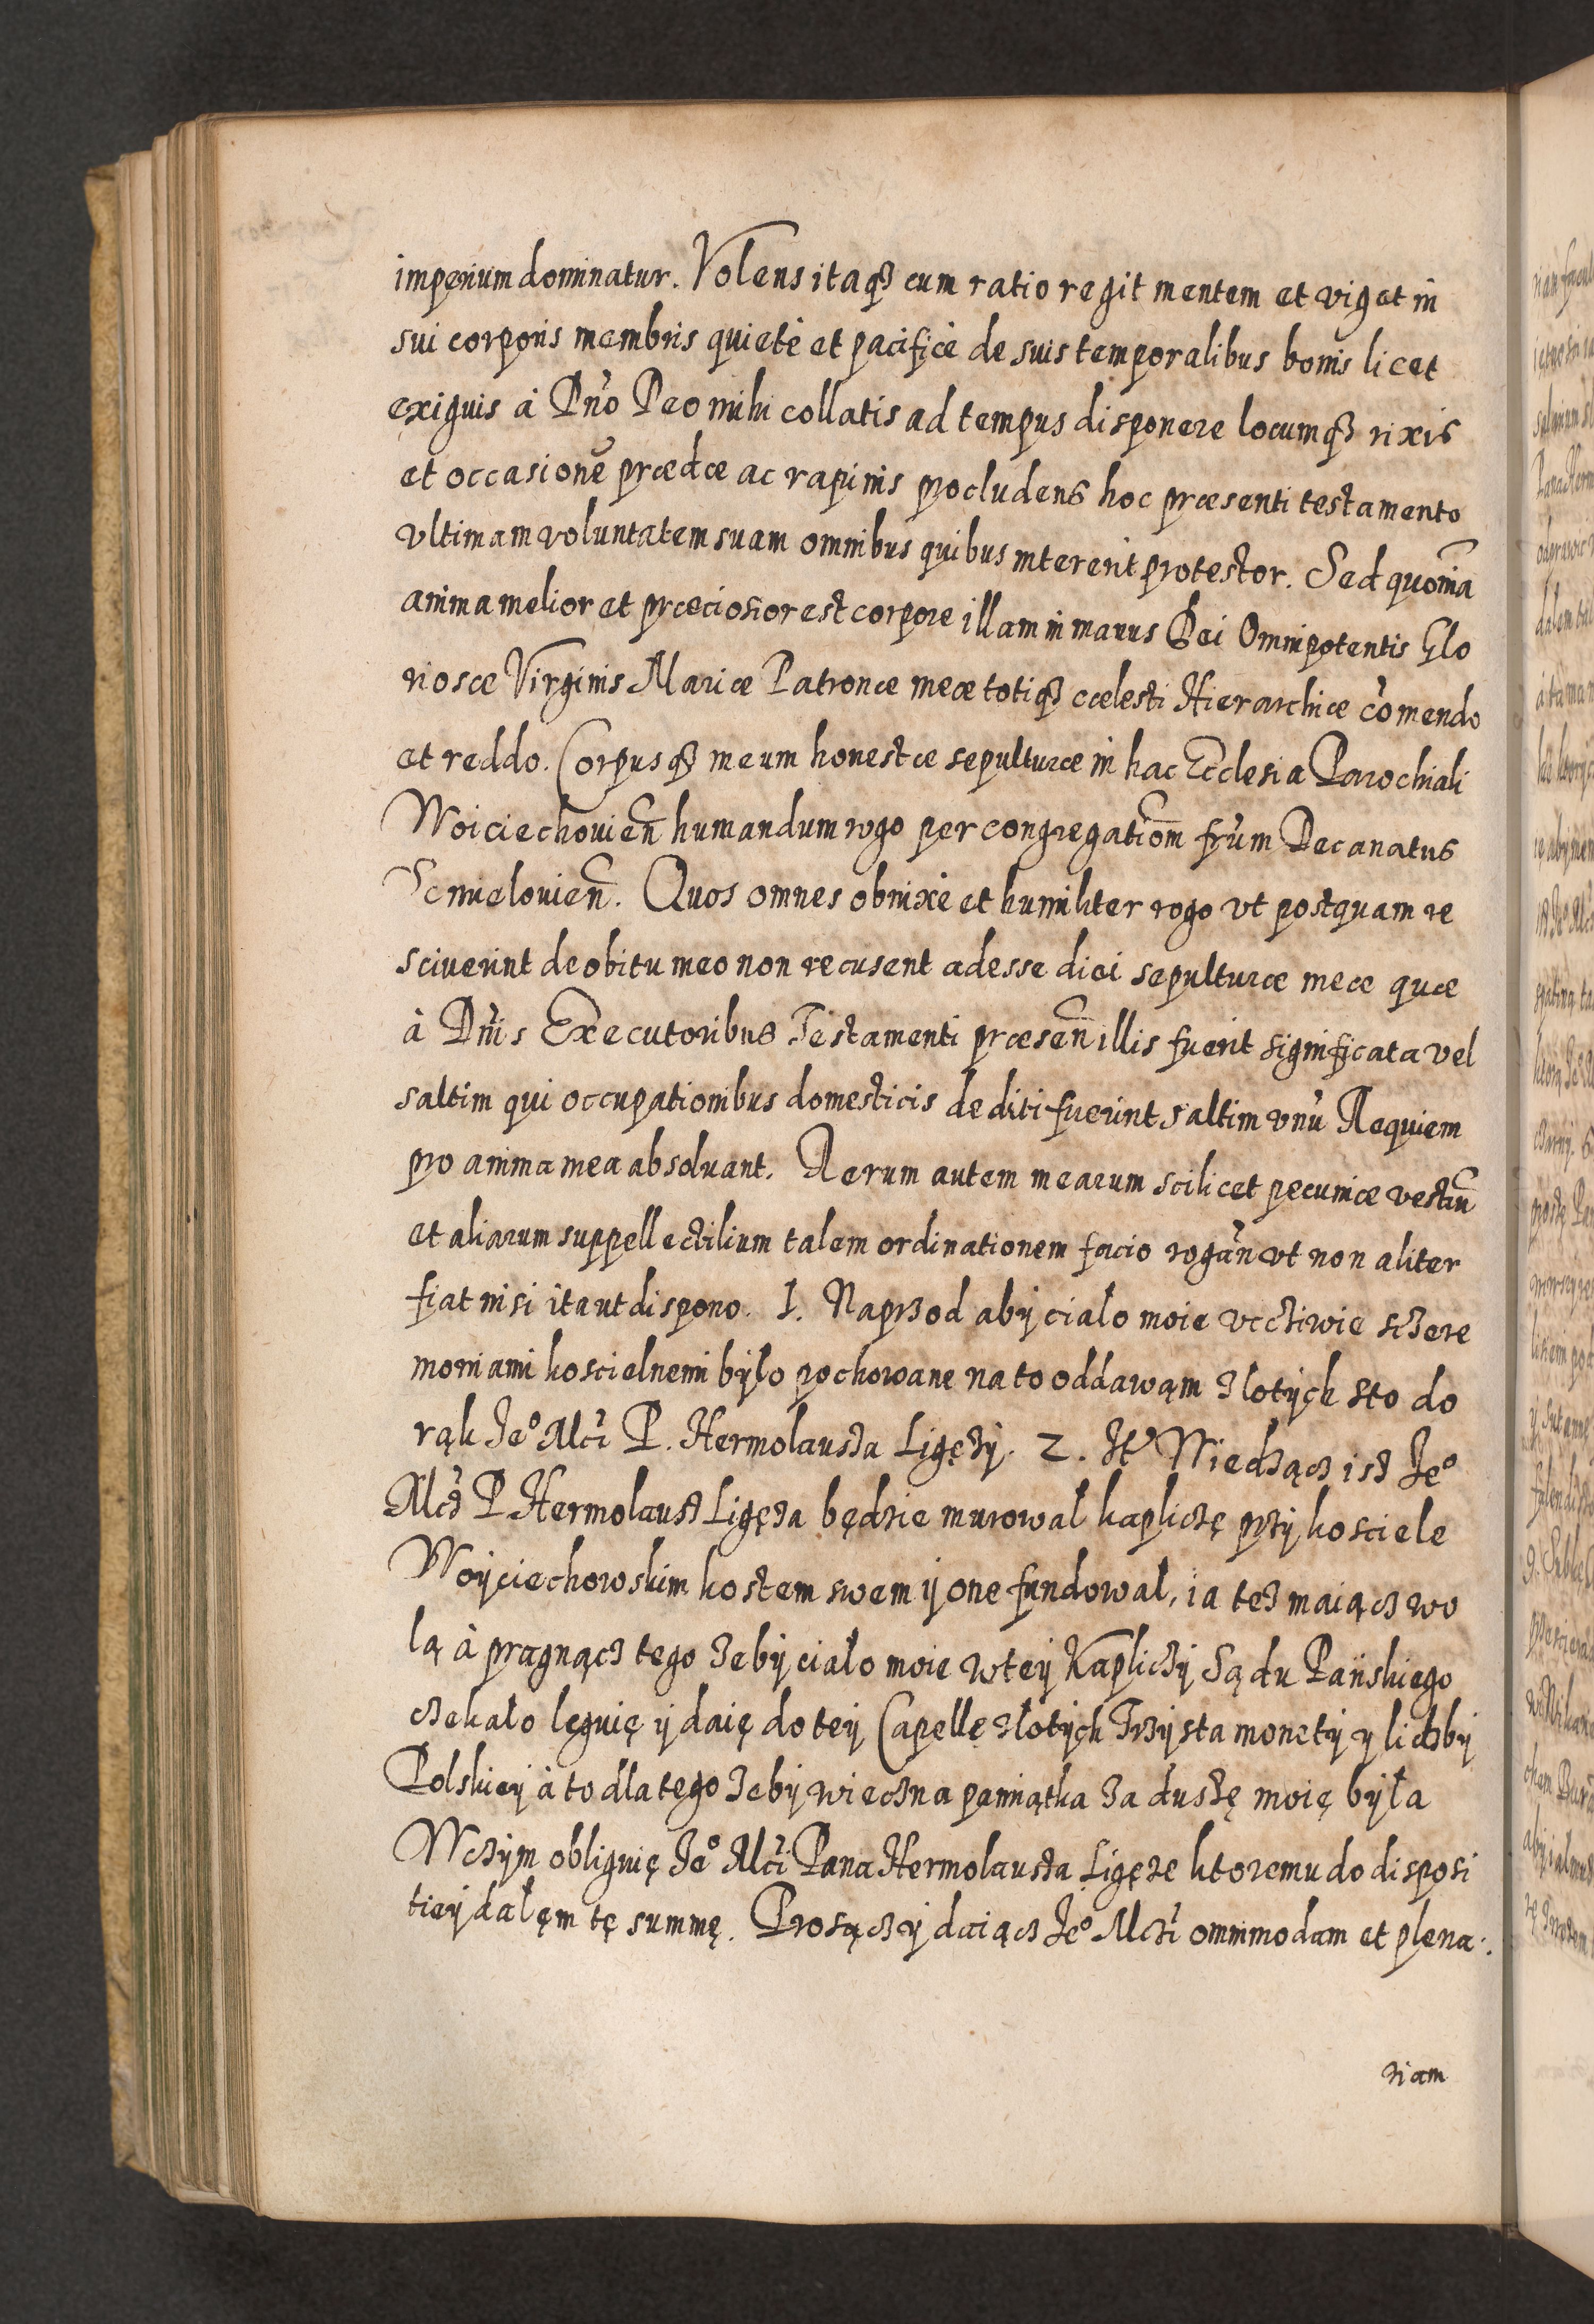 imperium dominatur. Volens itaqꝫ cum ratio regit mentem et viget in
sui corporis membris quietè et pacificè de suis temporalibus bonis licet
exiguis à Dn̄o Deo mihi collatis ad tempus disponere locumqꝫ rixis
et occasionē prædæ ac rapinis procludens hoc præsenti testamento
vltimam voluntatem suam omnibus quibus intererit protestor. Sed quoniā
anima melior et præciosior est corpore illam in manus Dei Omnipotentis Glo
riosæ Virginis Mariæ Patronæ meæ totiqꝫ cœlesti Hierarchiæ cōmendo
et reddo. Corpusqꝫ meum honestæ sepulturæ in hac Ecclesia Parochiali
Woiciechouien̄ humandum rogo per congregatiom̄ frūm Decanatus
Semielouien̄. Quos omnes obnixè et humiliter rogo vt postquam re
sciuerint de obitu meo non recusent adesse diei sepulturæ meæ quæ
à Dn̄is Executoribus Testamenti præsen̄ illis fuerit significata vel
saltim qui occupationibus domesticis dediti fuerint saltim vnū Requiem
pro anima mea absoluant. Rerum autem mearum scilicet pecuniæ vestiū
et aliarum suppellectilium talem ordinationem facio rogan̄ vt non aliter
fiat nisi ita ut dispono. 1. Naprzod aby ciało moie vcztiwie sczere
moniami koscielnemi było pochowane na to oddawąm złotych sto do
rąk Jeº Mći P. Hermolausza Ligęzy. 2. Itē Wiedząćz isz Jeº
Mćz P Hermolausz Ligęza będzie murował kapliczę przy kosciele
Woyciechowskim kosztem swem y one fundował, ia tez maiącz wo
lą à pragnącz tego zeby ciało moie w tey Kapliczy Sądu Pańskiego
czekało leguię y daię do tey Capelle złotych Trzysta monety y liczby
Polskiey à to dla tego zeby wieczna pamiątka za duszę moię była
W czym obliguię Jeº Mći Pana Hermolausza Ligęze ktoremu do disposi
tiey dałęm tę summę. Prosącz y daiącz Jeº Mczi omnimodam et plena:
riam